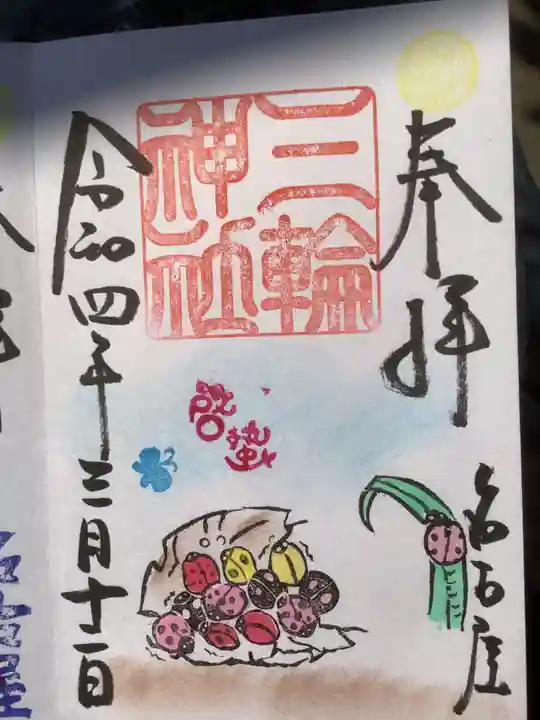 奉拝
名古屋
三輪
神社
啓蟄
令和四年三月十一日